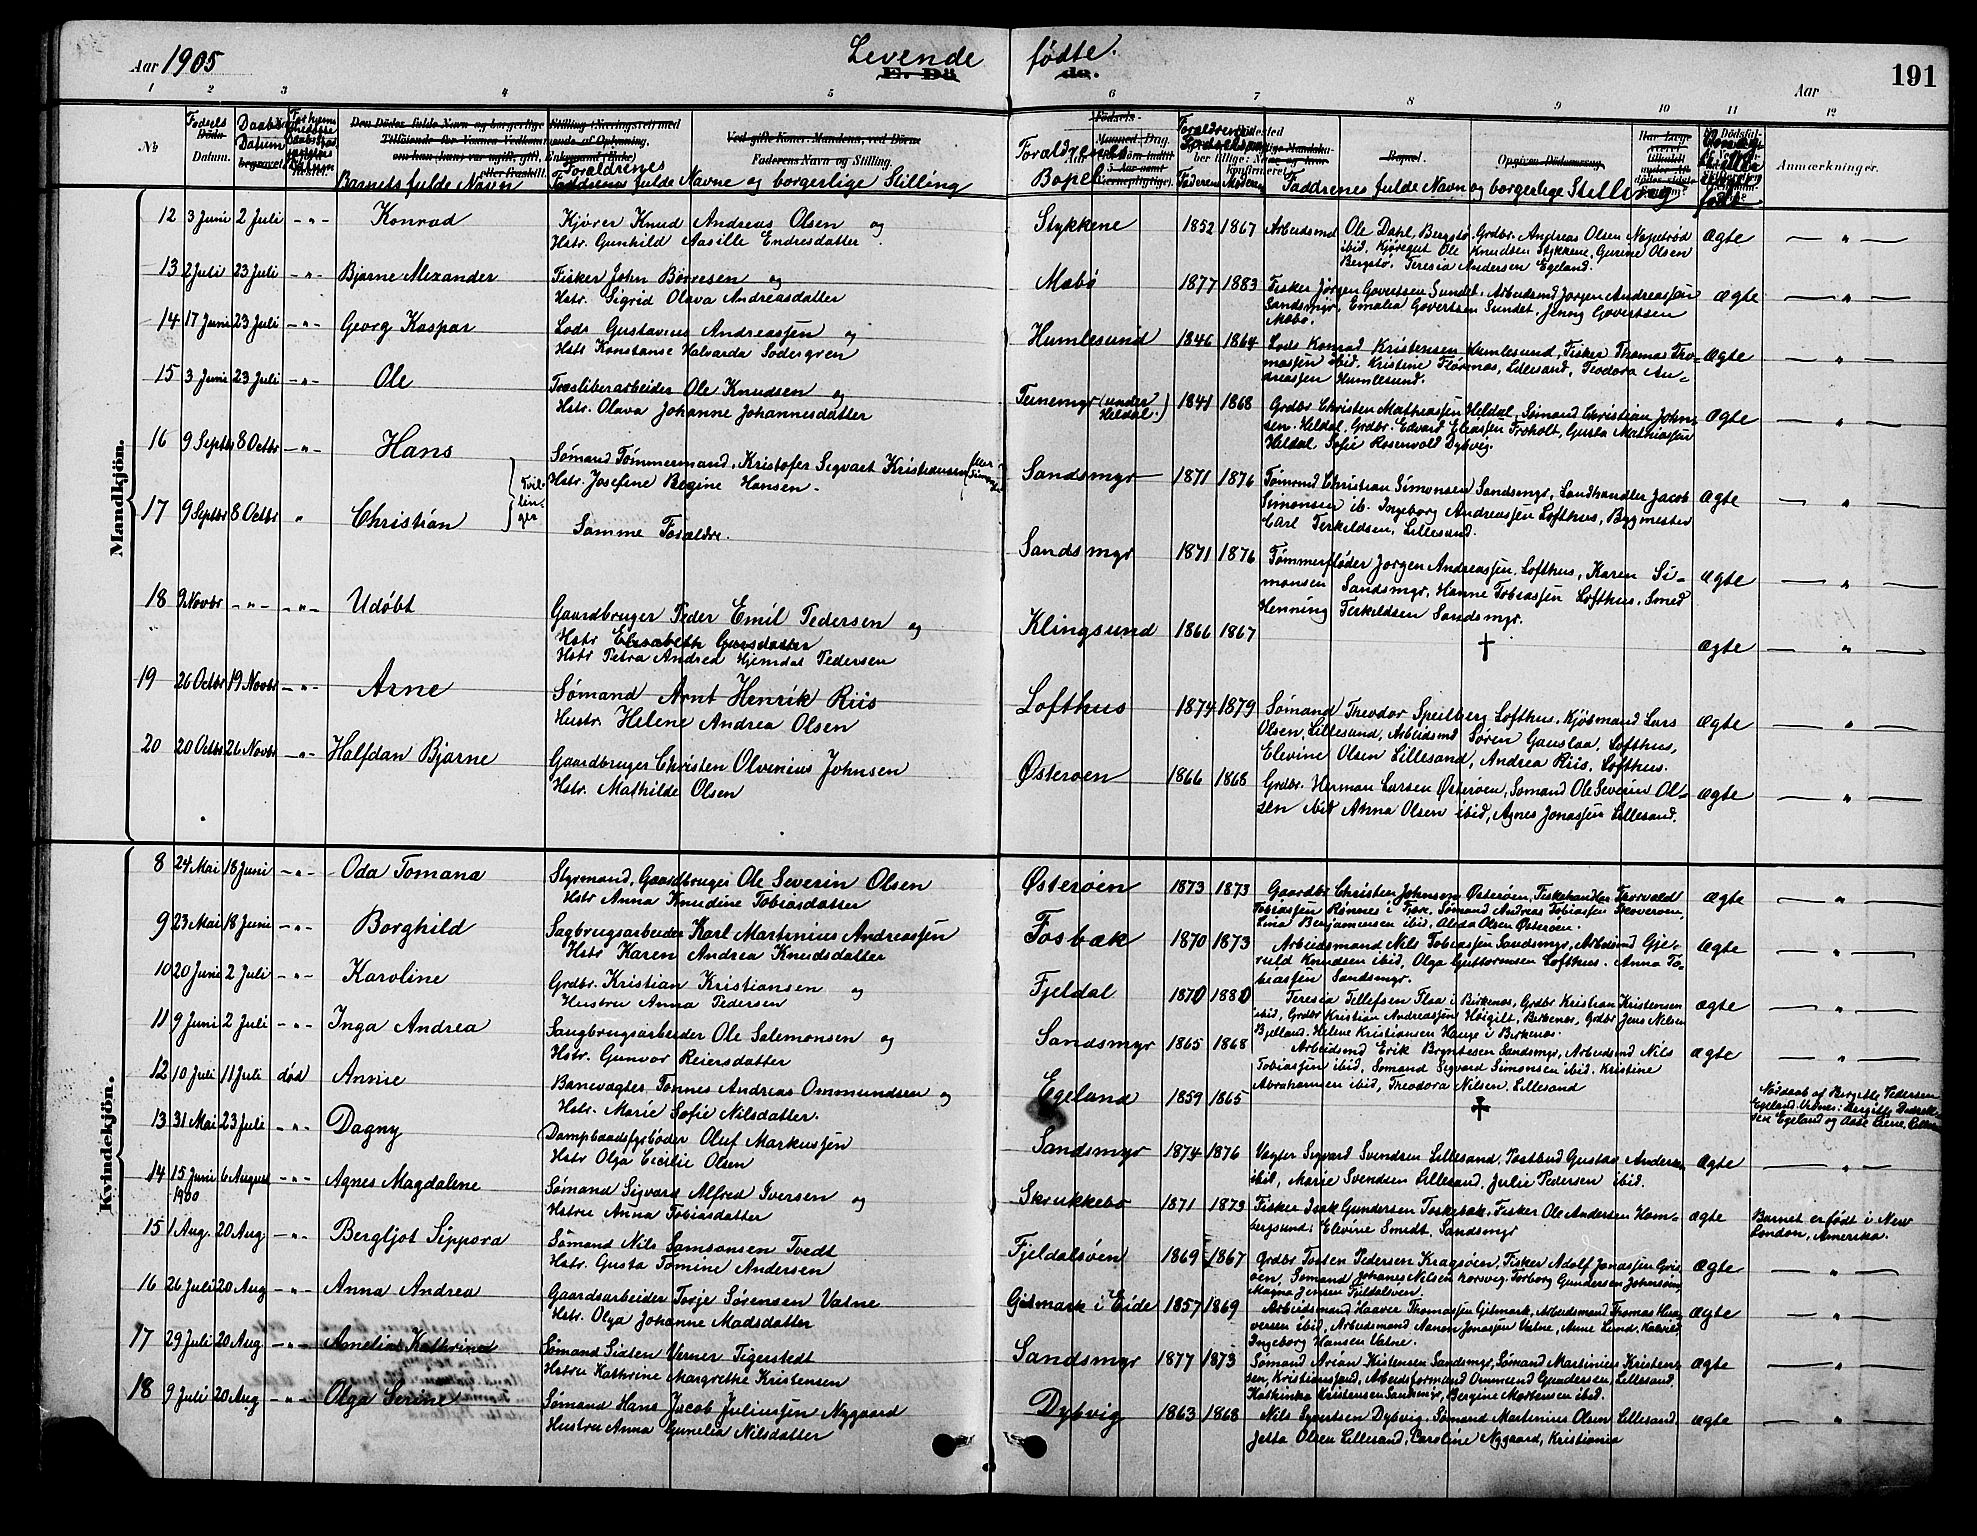 Aar 1905
Levende fødte.
E. Dø de.
Aar
191
1 2 3 4 5 6 7 8 9 10 11 12
No Fødsels Datum. Daabs Datum Barnets fulde Navn Forældrenes fulde Navne og borgerlige Stilling Forældrenes Bopel Faderens Moderens Faddrenes fulde Navn og borgerlige Stilling Anmærkninger.
Mandkjön.
12 3 Juni 2 Juli -"- Konrad Kjörer Knud Andreas Olsen og Stykkene 1852 1867 Arbeidsmd Ole Dahl, Bergstø. Grdbr. Andreas Olsen Nøpetrød Ægte — " —
Hstr. Gunhild Aasille Endresdatter ibid. Kjöregut Ole Knudsen Stykkene, Gurine Olsen
Bergstø, Teresia Andersen Egeland.
13 2 Juli 23 Juli -"- Bjarne Alexander Fisker John Börresen og Mæbø 1877 1883 Fisker Jörgen Govertsen Sundet. Arbeidsmd Jorgen Andreassen ægte — " —
Hstr. Sigrid Olava Andreasdatter Sandsmyr, Emalia Govertsen Sundet, Jenny Govertsen
Mæbø.
14 17 Juni 23 Juli -"- Georg Kaspar Lods Gustavius Andreassen og Humlesund 1846 1864 Lods Konrad Kristensen Humlesund, Fisker Thomas Tho- ægte — " —
Hstr Konstanse Halvarda Södergren massen ibid. Kristine Flörenæs, Lillesand, Teodora An-
dreassen Humlesund.
15 3 Juni 23 Juli -"- Ole Træsliberarbeider Ole Knudsen og Tunemyr (under Heldal.) 1841 1868 Grdbr Christen Mathiassen Heldal, Sømand Christian John- Ægte — " —
Hstr. Olava Johanne Johannesdatter sen. Heldal, Grdbr. Edvard Eliassen Froholt, Gusta Mathiassen
Heldal, Sofie Rosenvold Dybvig.
16 9 Septbr 8 Octbr -"- Hans Sømand Tømmermand, Kristofer Sigvart Kristiansen Sandsmyr 1871 1876 Tømmd Christian Simonsen Sandsmyr, Landhandler Jacob Ægte — " —
Tvillinger Hstr. Josefine Regine Hansen. Simonsen ib. Ingeborg Andreassen Lofthus, Bygmester
Carl Terkeldsen, Lillesand.
17 9 Septbr 8 Octbr " Christian Samme Forældre. Sandsmyr 1871 1876 Tømmerfløder Jorgen Andreassen, Lofthus, Karen Si- ægte — " —
monsen Sandsmyr, Hanne Tobiassen Lofthus. Smed
Henning Terkeldsen Sandsmyr.
18 9 Novbr -"- -"- Udøbt Gaardbruger Peder Emil Pedersen og Klingsund 1866 1867 † ægte — " —
Hstr Elisabeth
Hstr Petra Andrea Hjemdal Pedersen
19 26 Octbr 19 Novbr -"- Arne Sømand Arnt Henrik Riis Lofthus 1874 1879 Sømand Theodor Speilberg Lofthus, Kjøbmand Lars Ægte — " —
Hustr. Helene Andrea Olsen Olsen, Lillesund, Arbeidsmd Søren Gaustaa, Lofthus,
Elevine Olsen Lillesand, Andrea Riis, Lofthus.
20 20 Octbr 26 Novbr -"- Halfdan Bjarne Gaardbruger Christen Olvenius Johnsen Østerøen 1866 1868 Grdbr. Herman Larsen Østerøen, Sømand Ole Severin Ol- ægte — " —
Hstr. Mathilde Olsen sen ibid Anna Olsen ibid, Agnes Jonassen Lillesand.
Kvindekjön.
8 24 Mai 18 Juni -"- Oda Tomana Styrmand, Gaardbruger Ole Severin Olsen Østerøen 1873 1873 Gaardbr Christen Johnsen Østerøen, Fiskehandler Thorvald ægte — " —
Hstr Anna Knudine Tobiasdatter Tobiassen Rønnes i Fjære. Sømand Andreas Tobiassen Skoverøen,
Lina Benjaminsen ibid, Alida Olsen Østerøen.
9 23 Mai 18 Juni -"- Borghild Sagbrugsarbeider Karl Martinius Andreassen Fosbæk 1870 1873 Arbeidsmand Nils Tobiassen Sandsmyr, Arbeidsmd Gje- ægte — " —
Hstr Karen Andrea Knudsdatter ruld Knudsen ibid, Olga Guttormsen Lofthus. Anna To-
biassen Sandsmyr.
10 20 Juni 2 Juli -"- Karoline Grdbr. Kristian Kristiansen og Fjeldal 1870 1880 Teresia Tellefsen Flaa i Birkenæs, Grdbr Kristian Kristensen ægte — " —
Hustru Anna Pedersen ibid, Grdbr Kristian Andreassen Høigilt, Birkenes, Grdbr Jens Nilsen
Bjelland. Helene Kristiansen Hauge i Birkenæs.
11 9 Juni 2 Juli -"- Inga Andrea Saugbrugsarbeider Ole Salemonsen og Sandsmyr 1865 1868 Arbeidsmd Erik Bryntesen Sandsmyr, Arbeidsmd Nils ægte — " —
Hstr. Gunvor Reiersdatter Tobiassen ibid, Sømand Sigvard Simonsen ibid. Kristine
Abrahamsen ibid, Theodora Nilsen, Lillesand
12 10 Juli 11 Juli død Annie Banevagter Tønnes Andreas Ommundsen og Egeland 1859 1865 † Nøddaab af Bergitte Pedersen
Hstr. Marie Sofie Nilsdatter. Egeland. Vidner:
Egeland og Aase
13 31 Mai 23 Juli -"- Dagny Dampbaadsfyrbøder Oluf Markussen Sandsmyr 1874 1876 Vagter Sigvard Svendsen Lillesand, Postbud Gustav Andersen Ægte — " —
Hstr Olga Cecilie Olsen ibid, Marie Svendsen Lillesand, Julie Pedersen ibid.
14 15 Juni 1900 6 August -"- Agnes Magdalene Sømand Sigvard Alfred Iversen og Skrukkebo 1871 1873 Fisker Isak Gundersen Toskebæk. Fisker Ole Andersen Hom- ægte Barnet er født i New
Hstru Anna Tobiasdatter bersund; Elevine Smidt, Sandsmyr London, Amerika.
15 1 Aug. 20 Aug. -"- Bergljot Sippora Sømand Nils Samsonsen Tvedt Fjeldalsøen 1869 1867 Grdbr Tosten Pedersen Kragsøen, Fisker Adolf Jonassen Gris- ægte — " —
Hstr. Gusta Tomine Andersen øen, Sømand Johanes Nilsen Torvig. Torborg Gundersen Johnsøen,
Magna Jensen Fjeldalsøen
16 26 Juli 20 Aug -"- Anna Andrea Gaardsarbeider Torje Sørensen Vatne Gitmark i Eide 1857 1869 Arbeidsmand Haaver Thomassen Gitmark, Arbeidsmand Thomas Haa- ægte — " —
Hstr. Olga Johanne Madsdatter versen ibid, Arbeidsmand Aanon Jonassen Vatne, Anne Lund,
Ingeborg Hansen Vatne.
17 29 Juli 20 Aug -"- Amelia Kathrine Sømand Sixten Verner Tigerstedt Sandsmyr 1877 1873 Sømand Arian Kistensen Sandsmyr, Sømand Martinius Kristen- ægte — " —
Hstru Kathrine Margrethe Kristensen sen, Kristianssand, Arbeidsformand Ommund Gundersen, Lillesand.
Kathinka Kristensen Sandsmyr, Bergine Mortensen ibid.
18 9 Juli 20 Aug -"- Olga Serine Sømand Hans Jacob Juliussen Nygaard Dybvig 1863 1868 Nils Syvertsen Dybvig. Sømand Martinius Olsen Lillesand. ægte — " —
Hustru Anna Gunelia Nilsdatter Jetta Olsen Lillesand, Caroline Nygaard, Kristiania